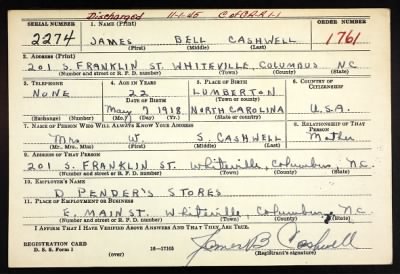 Discharged 11-1-45 C of G.R.R 1-1
SERIAL NUMBER 1. NAME (Print) ORDER NUMBER
2274 JAMES BELL CASHWELL 1761
(First) (Middle) (Last)
2. ADDRESS (Print)
201 S. FRANKLIN ST. WHITEVILLE, COLUMBUS NC
(Number and street or R. F. D. number) (Town) (County) (State)
3. TELEPHONE 4. AGE IN YEARS 5. PLACE OF BIRTH 6. COUNTRY OF CITIZENSHIP
NONE 22 LUMBERTON
DATE OF BIRTH (Town or county)
May 7 1918 NORTH CAROLINA U.S.A.
(Exchange) (Number) (Mo.) (Day) (Yr.) (State or country)
7. NAME OF PERSON WHO WILL ALWAYS KNOW YOUR ADDRESS 8. RELATIONSHIP OF THAT PERSON
Mrs W. S. CASHWELL Mother
(Mr., Mrs., Miss) (First) (Middle) (Last)
9. ADDRESS OF THAT PERSON
201 S. FRANKLIN ST. Whiteville, Columbus, NC.
(Number and street or R. F. D. number) (Town) (County) (State)
10. EMPLOYER'S NAME
D. PENDER'S STORES
11. PLACE OF EMPLOYMENT OR BUSINESS
E. MAIN ST. Whiteville, Columbus, NC
(Number and street or R. F. D. number) (Town) (County) (State)
I AFFIRM THAT I HAVE VERIFIED ABOVE ANSWERS AND THAT THEY ARE TRUE.
REGISTRATION CARD
D. S. S. Form 1 16-17105 James B Cashwell
(Registrant's signature)